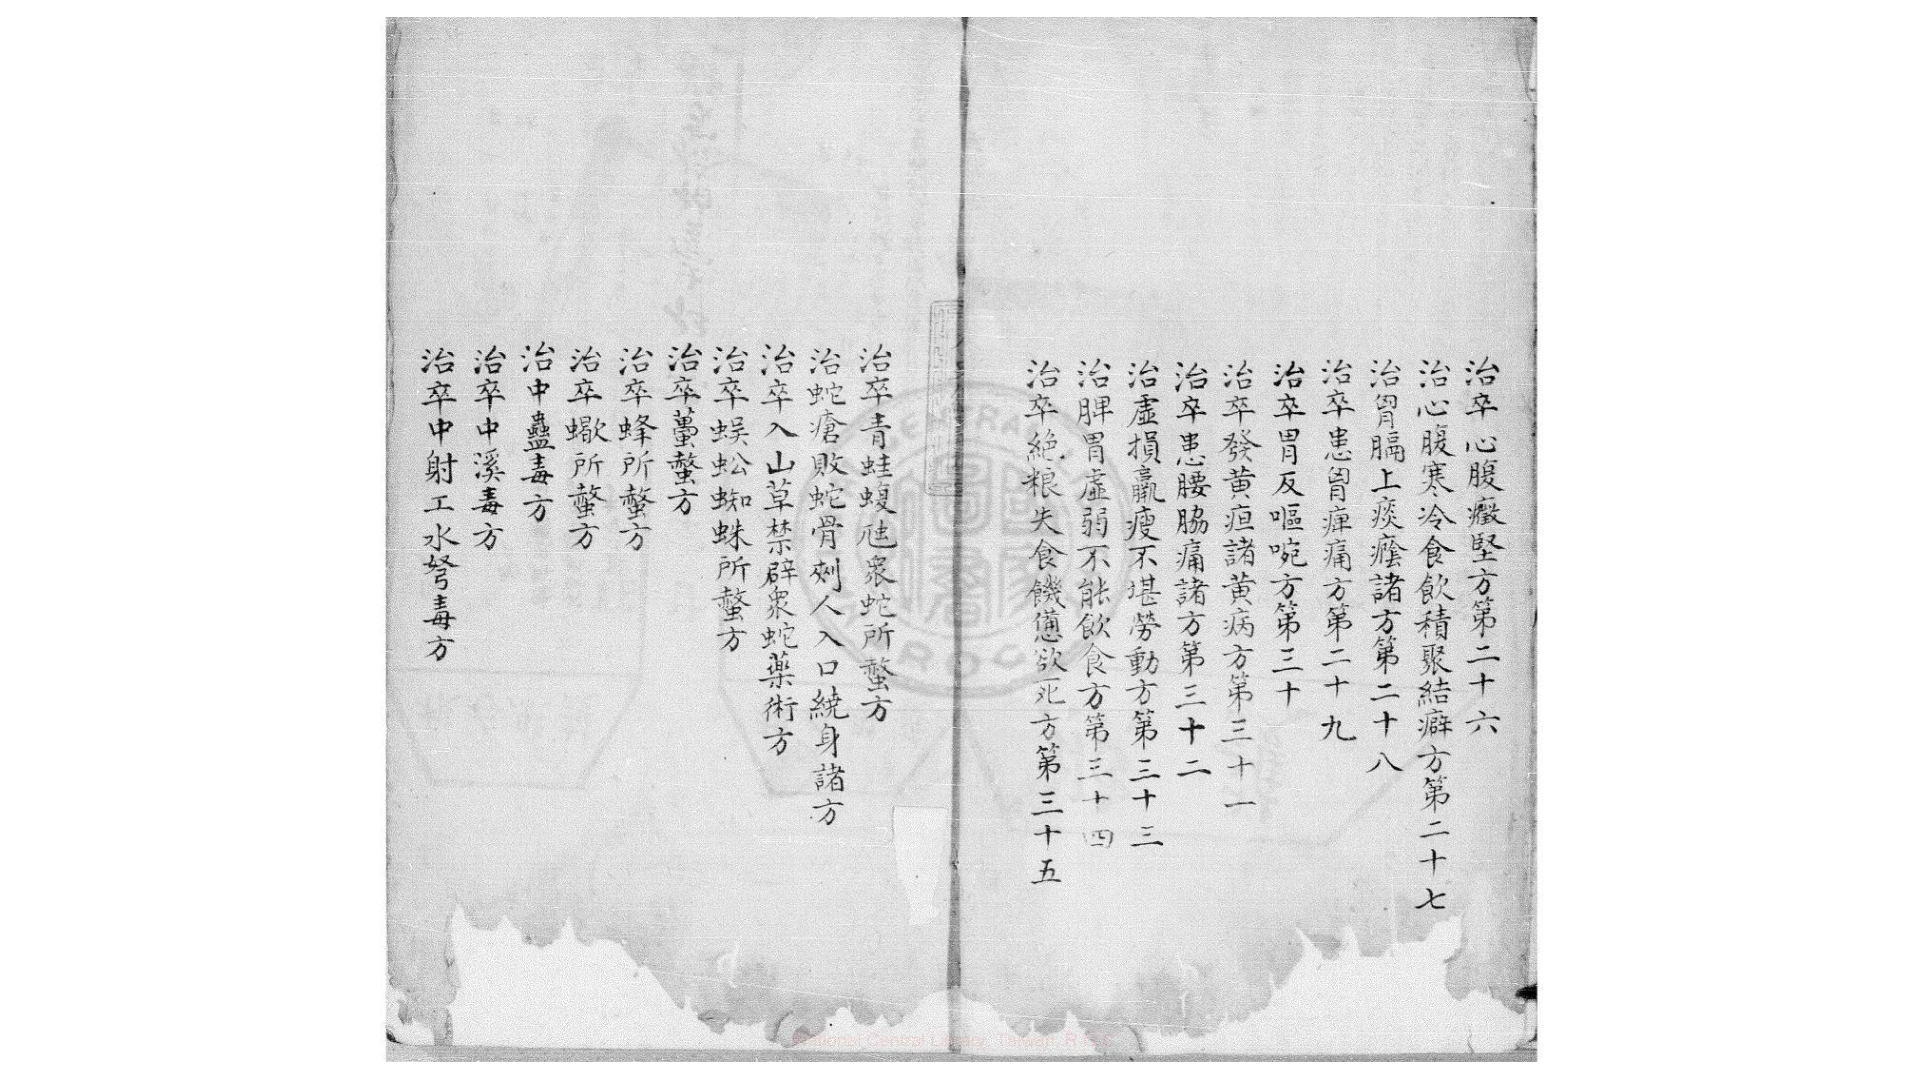 治卒心腹癥堅方第二十六
治心腹寒冷食飲積聚結癖方第二十七
治胷膈上痰癊諸方第二十八
治卒患胷痺痛方第二十九
治卒胃反嘔啘方第三十
治卒發黄疸諸黄病方第三十一
治卒患腰脇痛諸方第三十二
治虛損羸瘦不堪勞動方第三十三
治脾胃虛弱不能飲食方第三十四
治卒絶粮失食饑憊欲死方第三十五
治卒青蛙蝮虺衆蛇所螫方
治蛇瘡敗蛇骨刺人入口繞身諸方
治卒入山草禁辟衆蛇藥術方
治卒蜈蚣蜘蛛所螫方
治卒蠆螫方
治卒蜂所螫方
治卒蠍所螫方
治中蠱毒方
治卒中溪毒方
治卒中射工水弩毒方
National Central Library, Taiwan, R.O.C